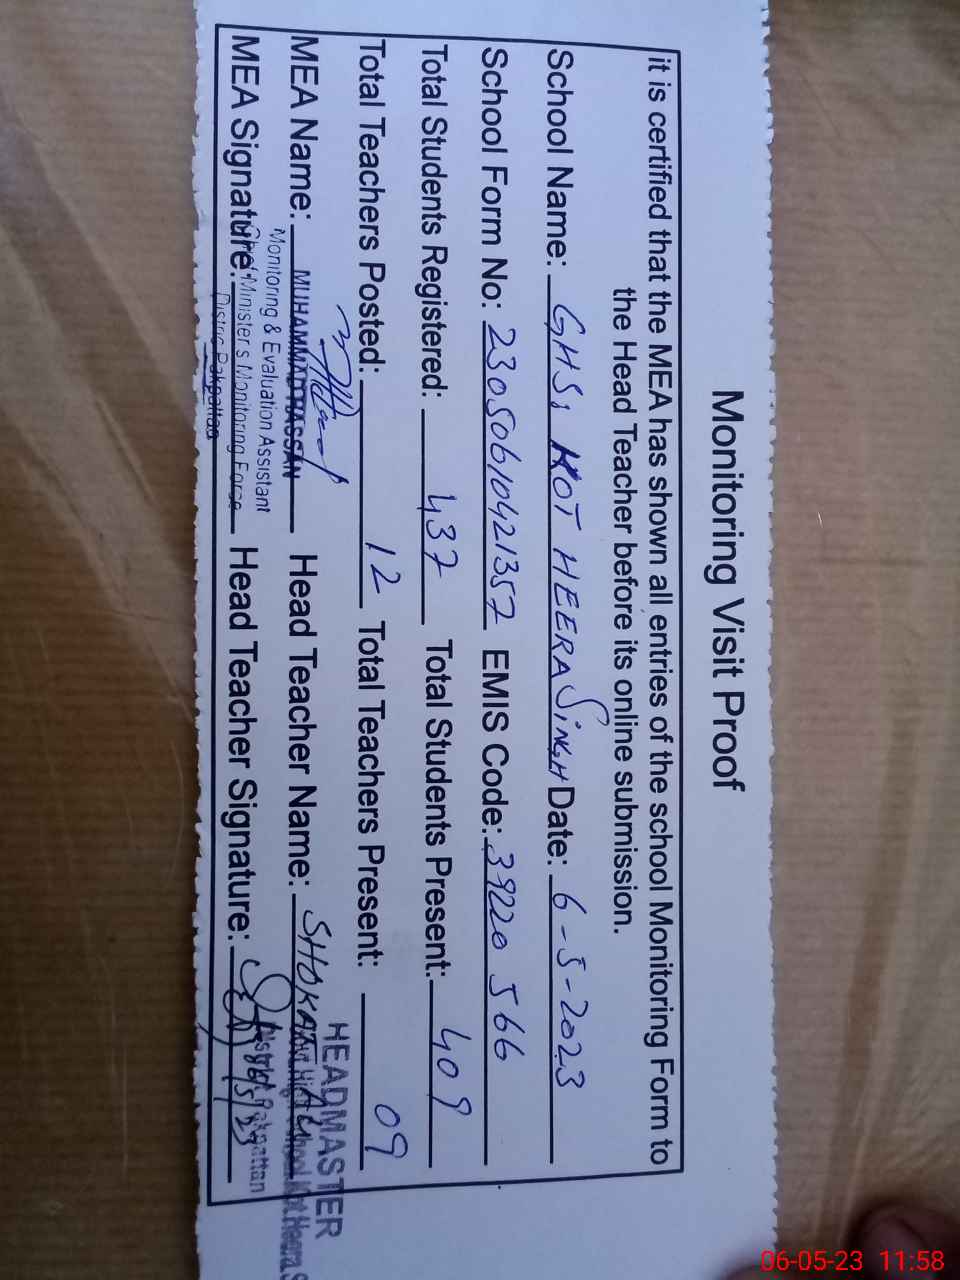 Monitoring Visit Proof
it is certified that the MEA has shown all entries of the school Monitoring Form to
the Head Teacher before its online submission.
School Name: GHS, KOT HEERA SINGH Date: 6-5-2023
School Form No: 23050610421357 EMIS Code: 39220566
Total Students Registered: 437 Total Students Present: 409
Total Teachers Posted: 12 Total Teachers Present: 09
MEA Name: MUHAMMAD HASSAN Head Teacher Name: SHOKAT ALI
Monitoring & Evaluation Assistant
HEADMASTER
MEA Signature: Chief Minister's Monitoring Force Head Teacher Signature:
District Pakpattan
High School Kot Heera S
District Pakpattan
06-05-23 11:58